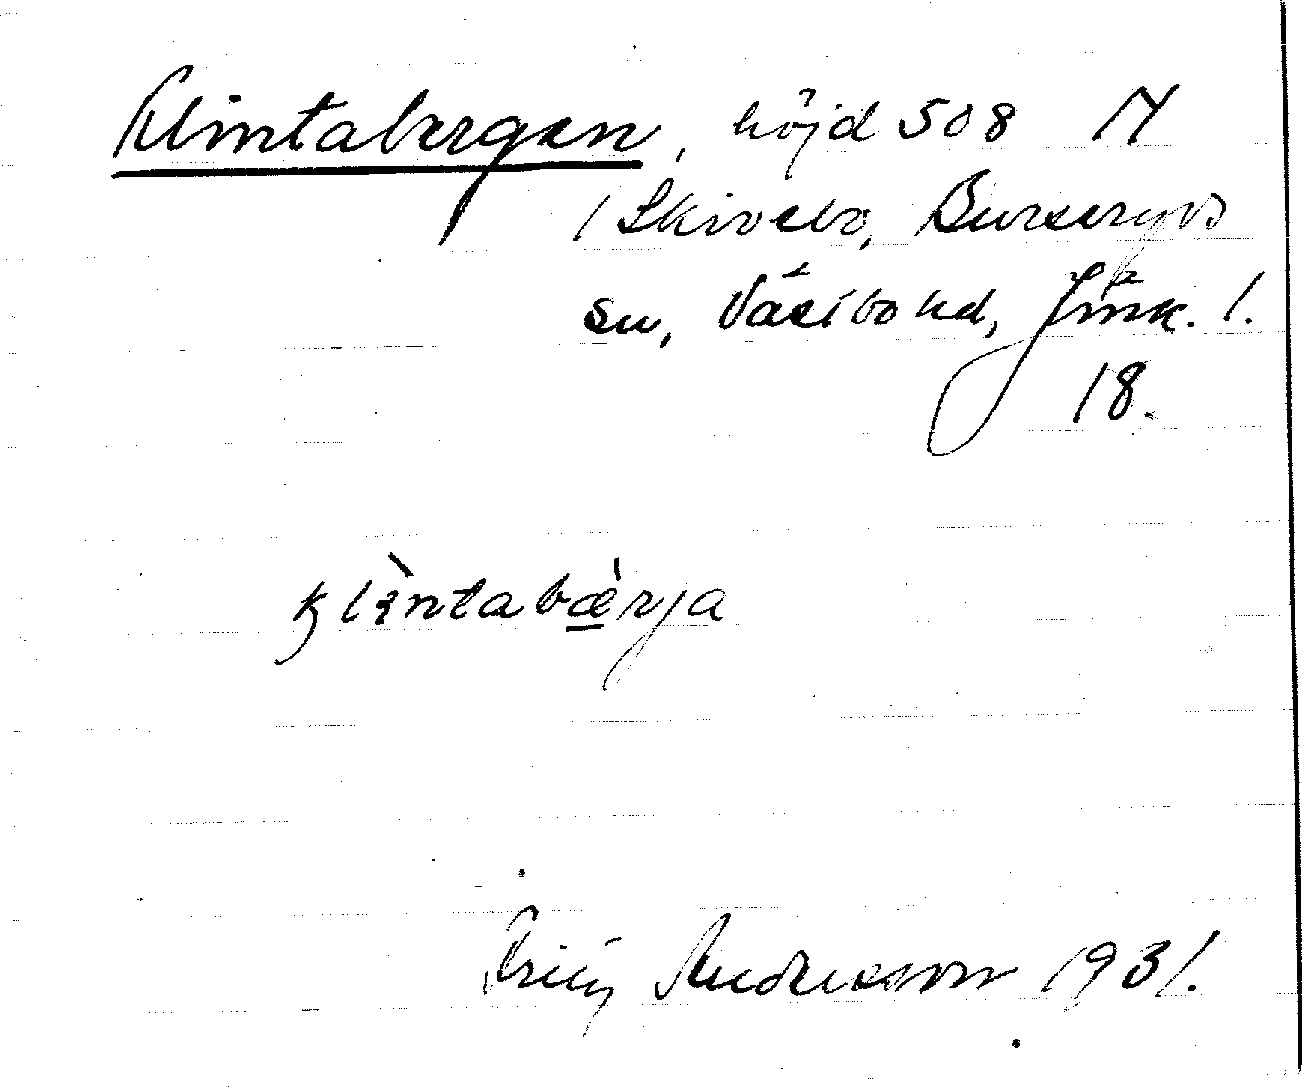 Klintabergen, höjd 508 N
/ Skivebo, Burseryds
sn, Västbo hd, Jönk. l.
18.
klìntabæ̀rja
Fritz Andersson 1931.